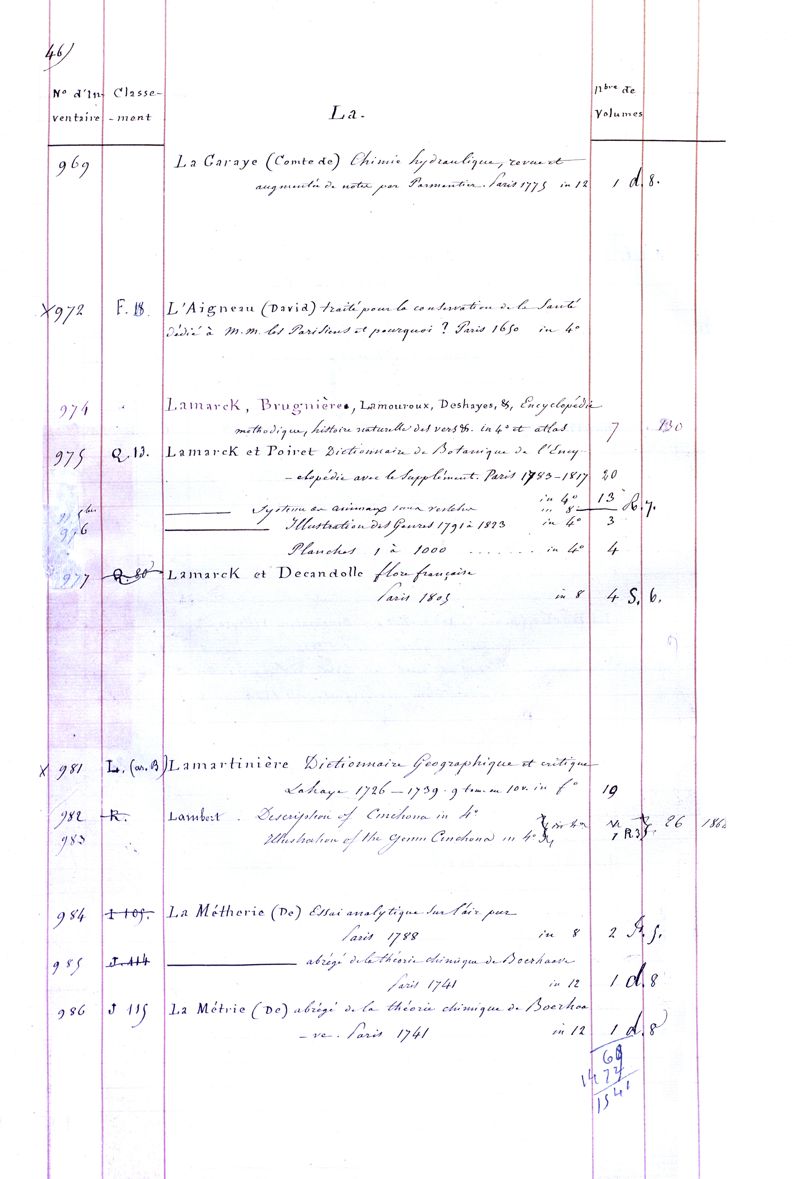 46)
N° d'In- Classe- Nbre de
ventaire -ment La. Volumes
969 La Garaye (Comte de) Chimie hydraulique, revue et
augmentée de notes par Parmentier. Paris 1775 in 12 1 d. 8.
X 972 F. 18. L'Aigneau (David) traité pour la conservation de la Santé
dédié à M.M. les Parisiens et pourquoi ? Paris 1650 in 4°
974 Lamarck, Brugnières, Lamouroux, Deshayes, &, Encyclopédie
méthodique, histoire naturelle des vers &. in 4° et atlas 7 130
975 Q. 13. Lamarck et Poiret Dictionnaire de Botanique de l'Ency-
-clopédie avec le Supplément. Paris 1783-1817 20
in 4° 13
Système animaux sans vertèbres in 8 R. 7.
976 Illustration des Genres 1791 à 1823 in 4° 3
Planches 1 à 1000 ....... in 4° 4
977 Q 80 Lamarck et Decandolle flore française
Paris 1805 in 8 4 S. 6.
X 981 L. (ar. B) Lamartinière Dictionnaire Geographique et critique
Lahaye 1726 - 1739. 9 tom. en 10 v. in f° 19
982 R. Lambert. Description of Cinchona in 4° 26 186
983 Illustration of the Genus Cinchona in 4° 1 R.3
984 I 105. La Métherie (De) Essai analytique sur l'air pur
Paris 1788 in 8 2 5.
985 J. 114 abrégé de la théorie chimique de Boerhaave
Paris 1741 in 12 1 d. 8
986 J 115 La Métrie (De) abrégé de la théorie chimique de Boerhaa
-ve. Paris 1741 in 12 1 d. 8
1541